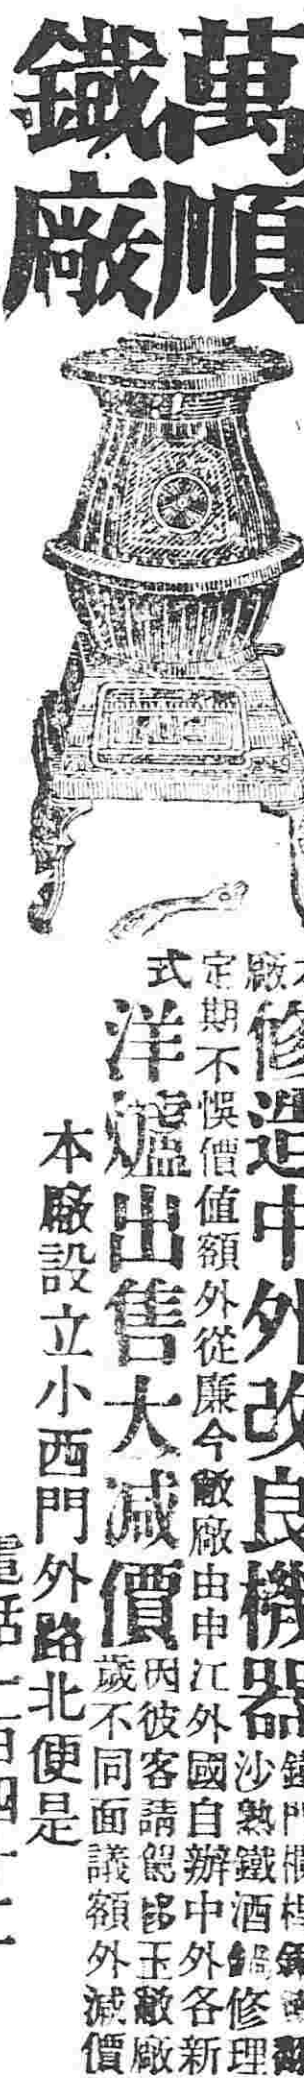 萬順
鐵廠
本廠修造中外改良機器
沙熟鐵酒鍋修理
定期不悞價值額外從廉今敝廠由申江外國自辦中外各新
式洋爐出售大減價
因彼客請駕玉敝廠
歲不同面議額外減價
本廠設立小西門外路北便是
電話二百四十二